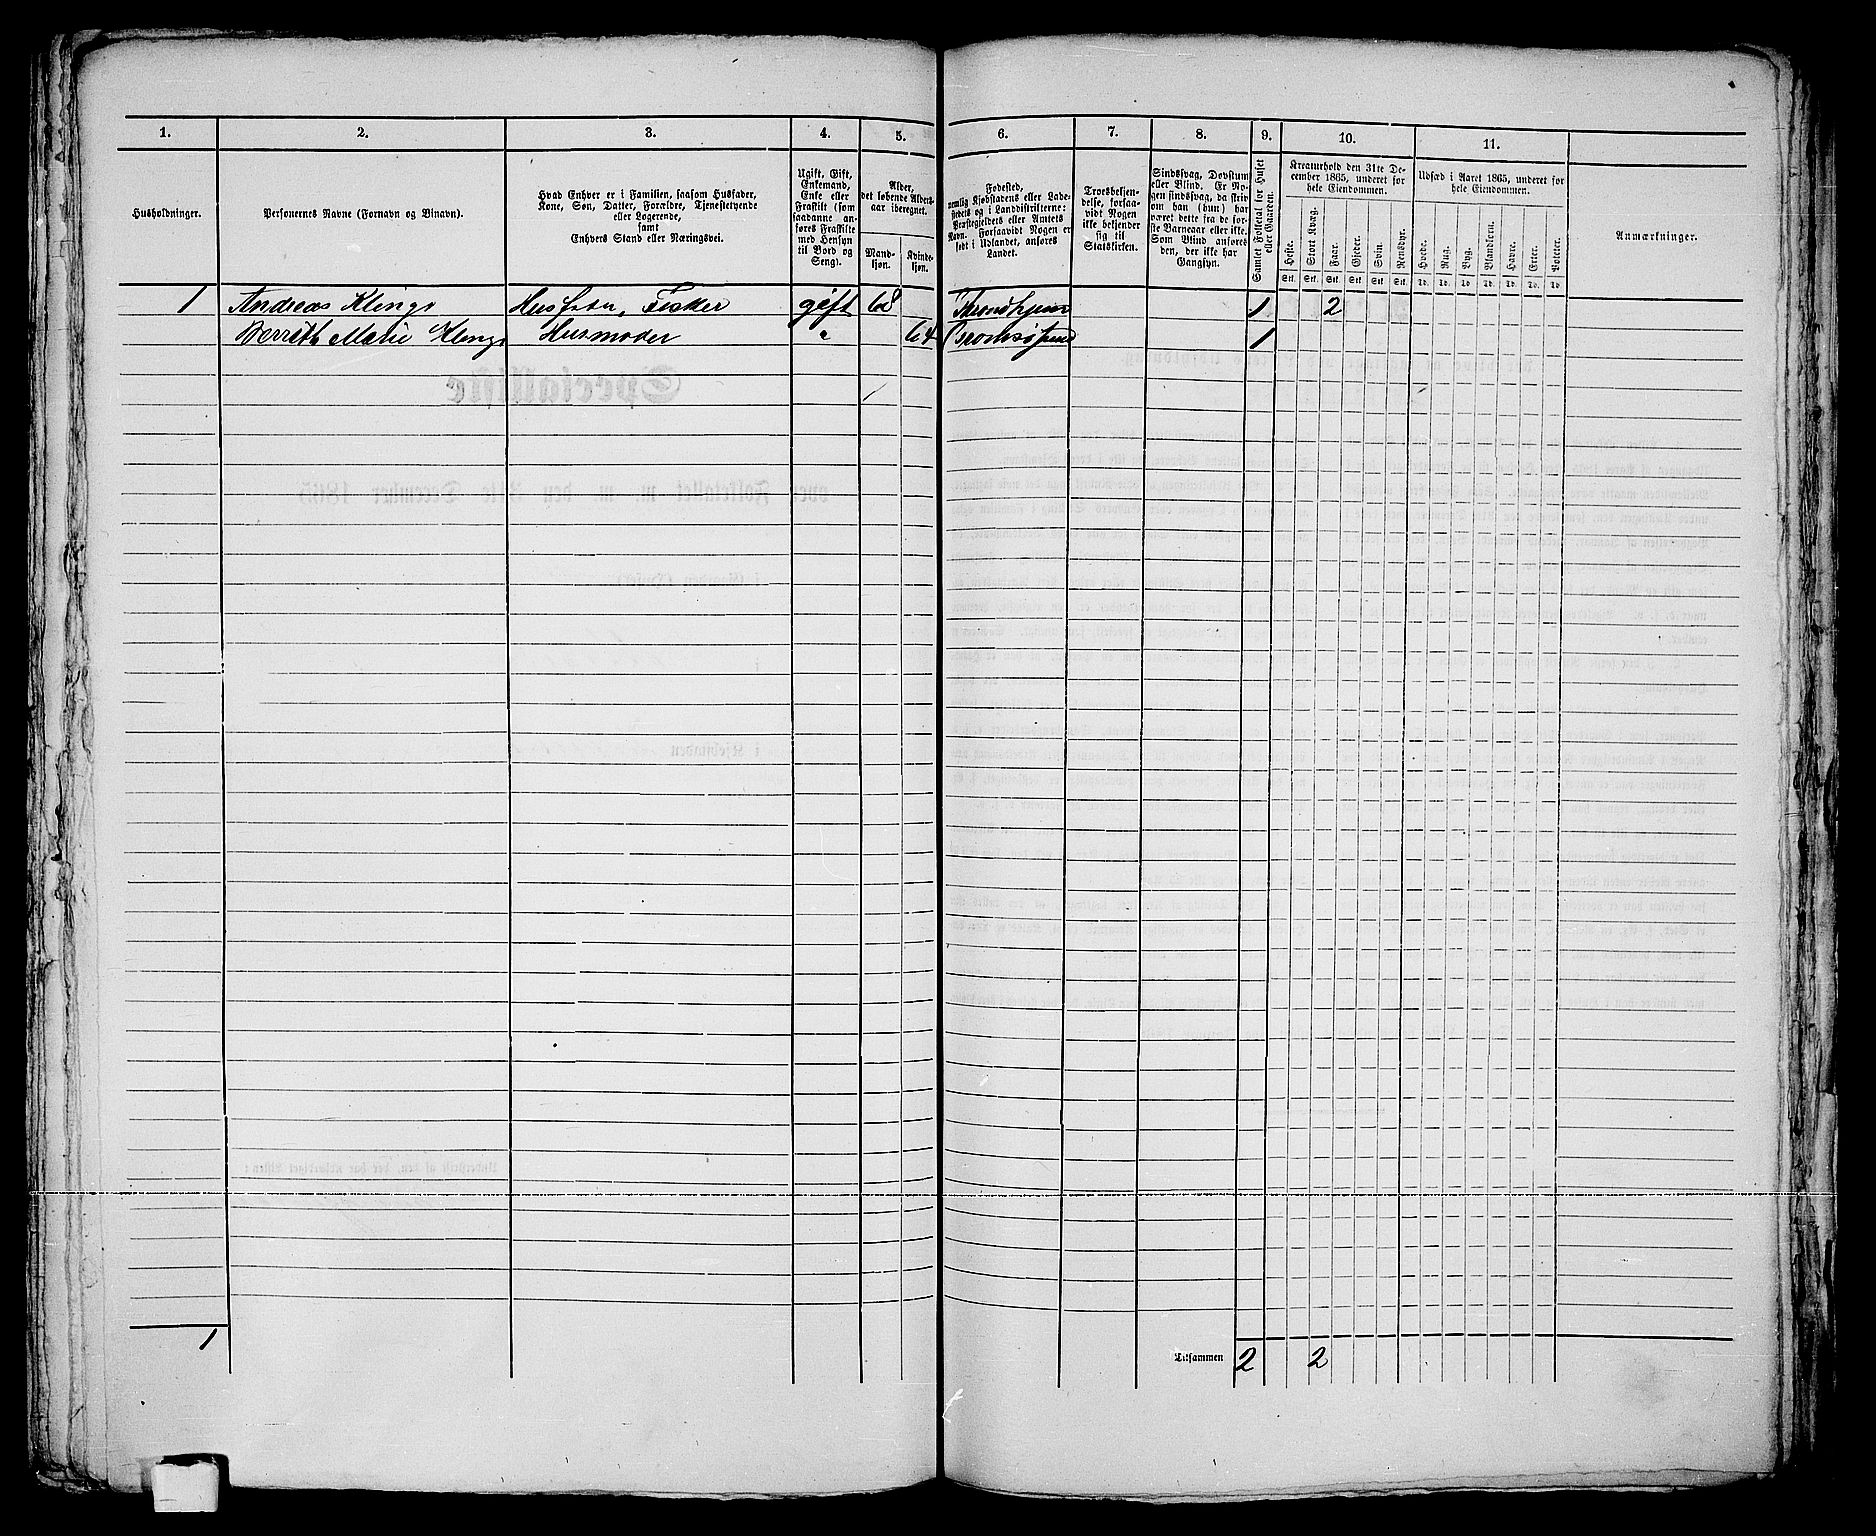 1. 2. 3. 4. 5. 6. 7. 8. 9. 10. 11.
Husholdninger.
Personernes Navne (Fornavn og Binavn).
Hvad Enhver er i Familien, saasom Husfader,
Kone, Søn, Datter, Forældre, Tjenestetyende
eller Logerende,
samt
Enhvers Stand eller Næringsvei.
Ugift, Gift,
Enkemand,
Enke eller
Fraskilt (som
saadanne an-
føres Fraskilte
med Hensyn
til Bord og
Seng).
Alder,
det løbende Alders-
aar iberegnet.
Mand-
kjøn.
Kvinde-
kjøn.
Fødested,
nemlig Kjøbstadens eller Lade-
stedets og i Landdistrikterne:
Præstegjeldets eller Amtets
Navn. Forsaavidt Nogen er
født i Udlandet, anføres
Landet.
Troesbekjen-
delse, forsaa-
vidt Nogen
ikke bekjender
sig til
Statskirken.
Sindssvag, Døvstum
eller Blind. Er No-
gen sindssvag, da skriv
om han (hun) har
været dette fra de før-
ste Barneaar eller ikke.
Som Blind anføres
den, der ikke har
Gangsyn.
Samlet Folketal for Huset
eller Gaarden.
Kreaturhold den 31te De-
cember 1865, underet for
hele Eiendommen.
Heste. Stort Kvæg. Faar. Gjeder. Svin. Rensdyr.
Stk. Stk. Stk. Stk. Stk. Stk.
Udsæd i Aaret 1865, underet for
hele Eiendommen.
Hvede. Rug. Byg. Blandkorn. Havre. Erter. Poteter.
Td. Td. Td. Td. Td. Td. Td.
Anmærkninger.
1 Andreas Klinge Husfader, Fisker gift 68 Throndhjem 1 2
Berrith Marie Klinge Husmoder " 64 Tromsøsund 1
1 Tilsammen 2 2